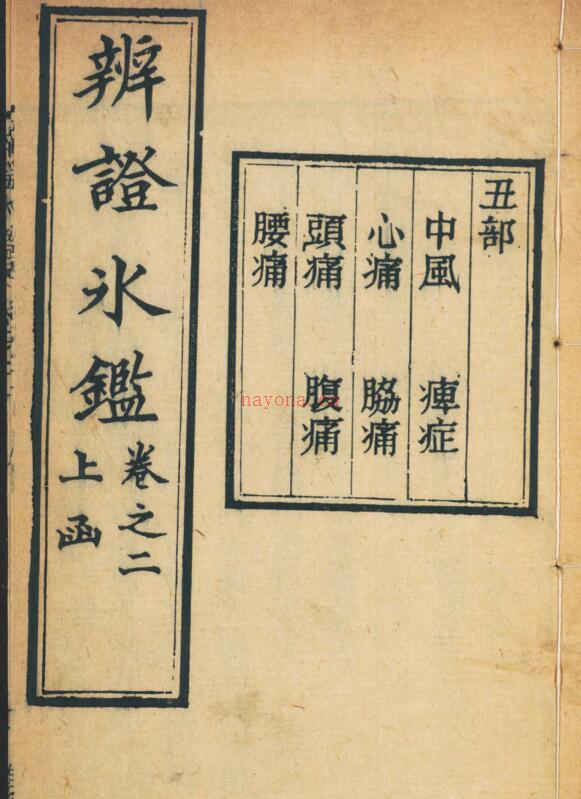 丑部
中風 痺症
心痛 脇痛
頭痛 腹痛
腰痛
辨證氷鑑
卷之二
上函
nayona.cn